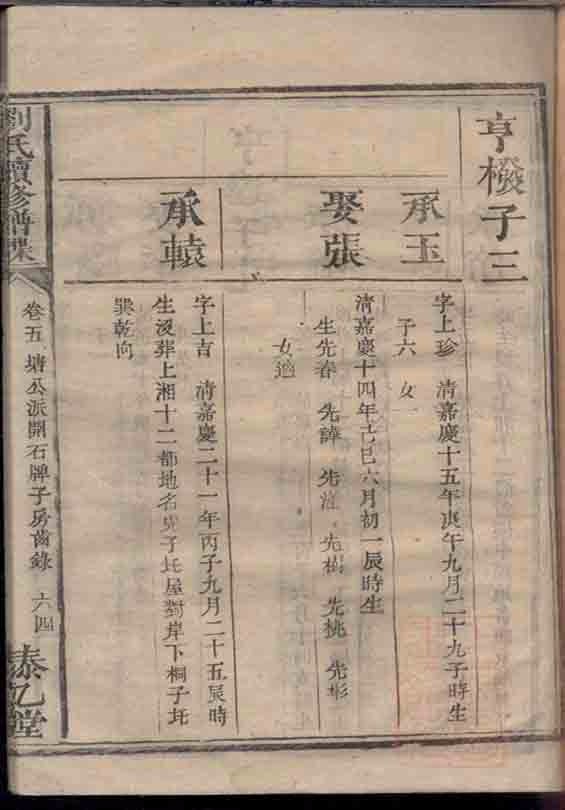 亨橃子三
承玉
字上珍 清嘉慶十五年庚午九月二十九子時生
子六 女一
娶張
清嘉慶十四年己巳六月初一辰時生
生先春 先諱 先 先樹 先桃 先彬
女適
承轅
字上吉 清嘉慶二十一年丙子九月二十五辰時
生沒葬上湘十二都地名 子圫屋對岸下桐子圫
巽乾向
劉氏續修譜牒
卷五 塘公派開石牌子房齒錄 六四
泰乙堂